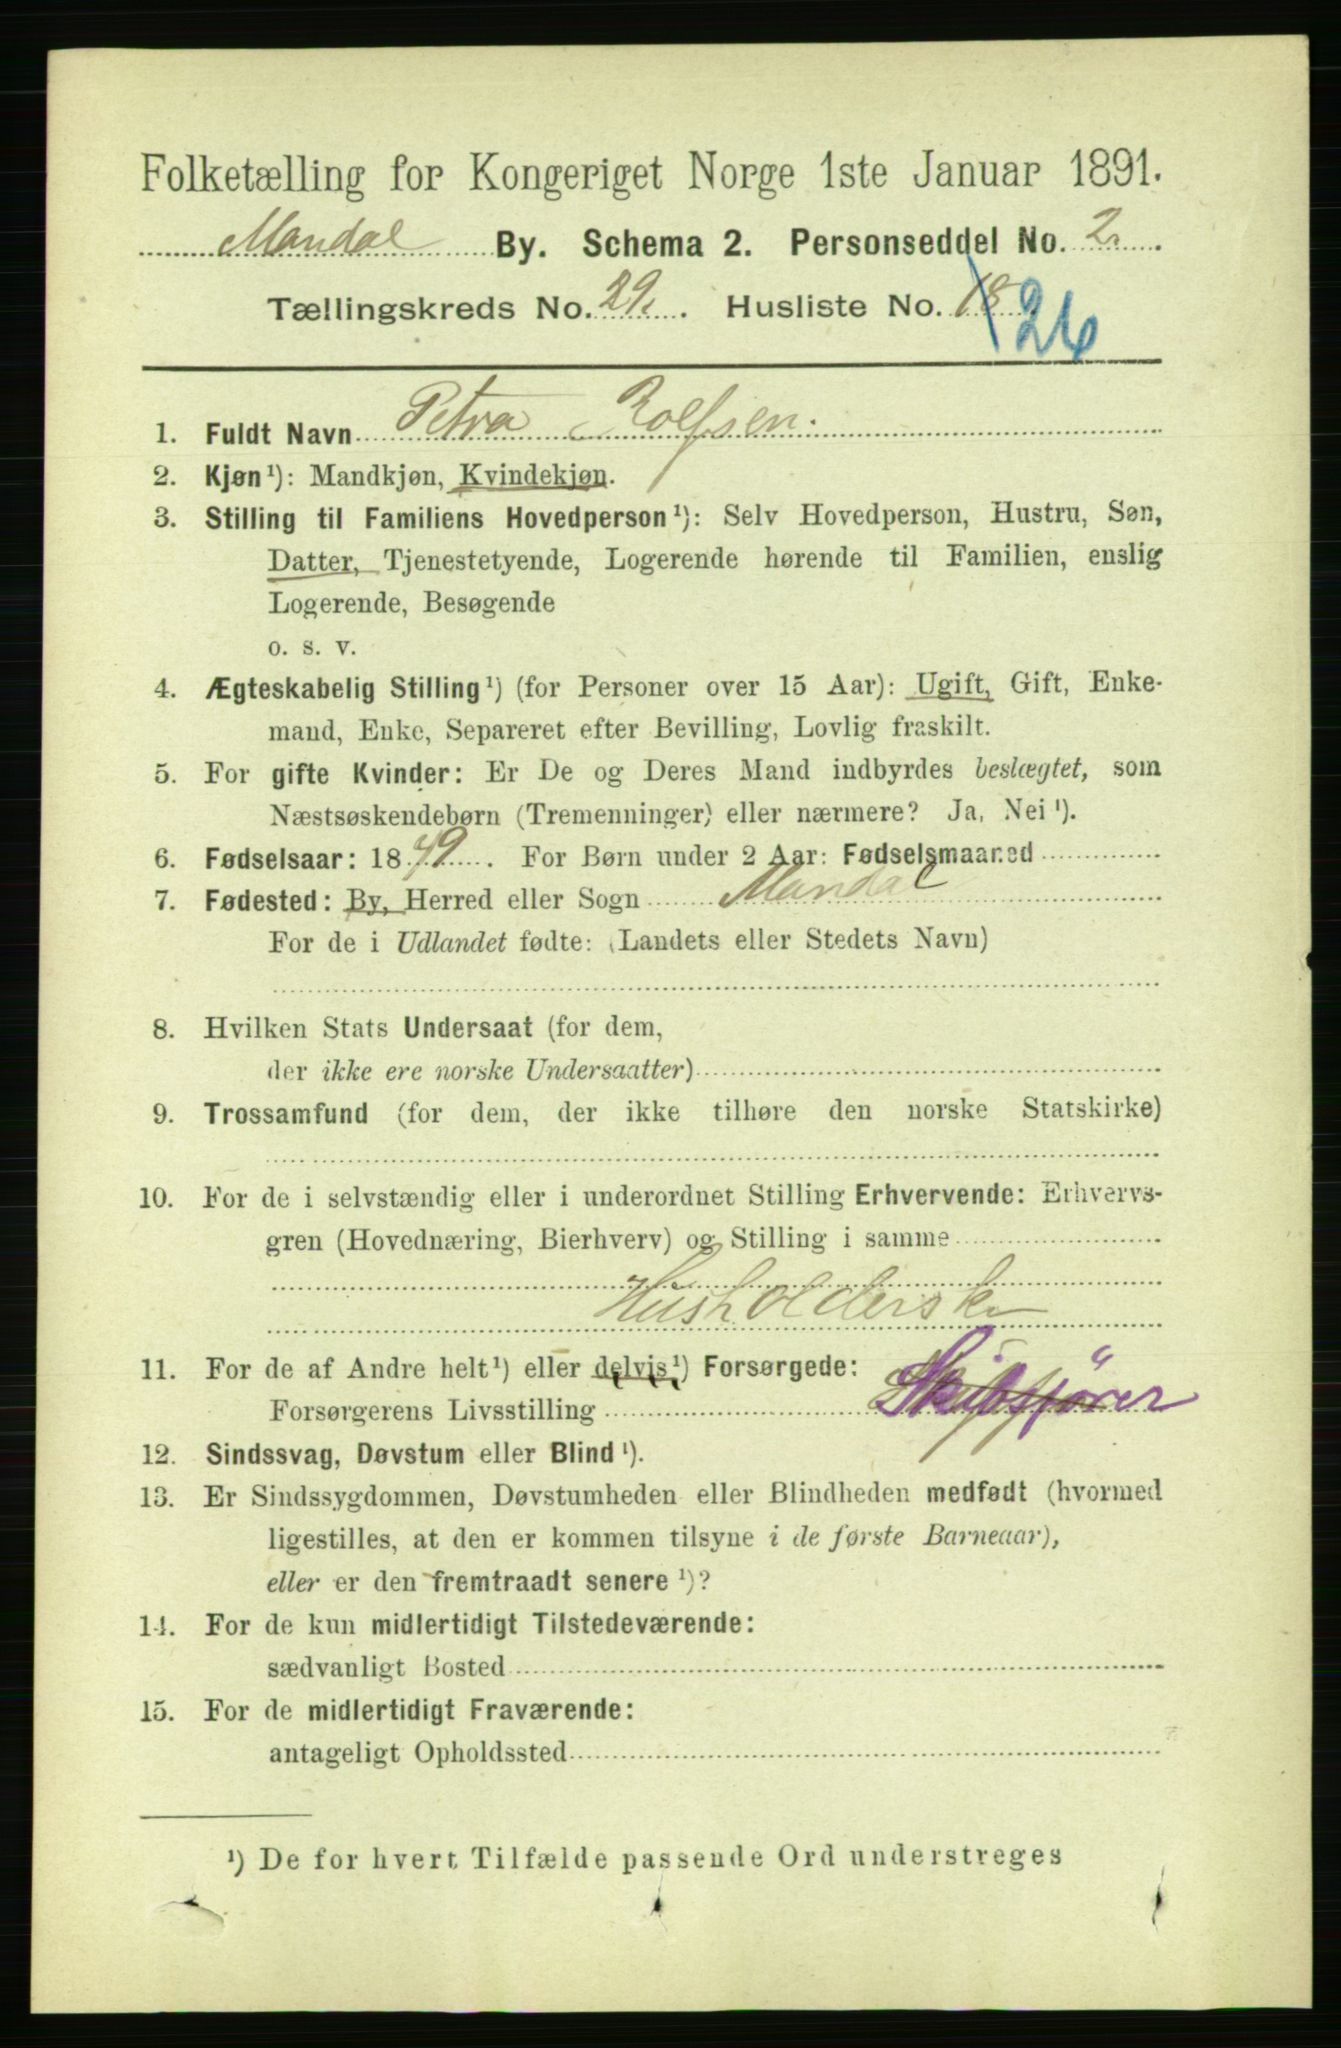 Folketælling for Kongeriget Norge 1ste Januar 1891.
Mandal By. Schema 2. Personseddel No. 2.
Tællingskreds No. 29. Husliste No. 18 26
1. Fuldt Navn Petra Rolfsen.
2. Kjøn¹): Mandkjøn, Kvindekjøn.
3. Stilling til Familiens Hovedperson¹): Selv Hovedperson, Hustru, Søn,
Datter, Tjenestetyende, Logerende hørende til Familien, enslig
Logerende, Besøgende
o. s. v.
4. Ægteskabelig Stilling¹) (for Personer over 15 Aar): Ugift, Gift, Enke-
mand, Enke, Separeret efter Bevilling, Lovlig fraskilt.
5. For gifte Kvinder: Er De og Deres Mand indbyrdes beslægtet, som
Næstsøskendebørn (Tremenninger) eller nærmere? Ja, Nei¹).
6. Fødselsaar: 1849. For Børn under 2 Aar: Fødselsmaaned
7. Fødested: By, Herred eller Sogn Mandal
For de i Udlandet fødte: (Landets eller Stedets Navn)
8. Hvilken Stats Undersaat (for dem,
der ikke ere norske Undersaatter)
9. Trossamfund (for dem, der ikke tilhøre den norske Statskirke)
10. For de i selvstændig eller i underordnet Stilling Erhvervende: Erhvervs-
gren (Hovednæring, Bierhverv) og Stilling i samme
Husholderske
11. For de af Andre helt¹) eller delvis¹) Forsørgede:
Forsørgerens Livsstilling Skibsfører
12. Sindssvag, Døvstum eller Blind¹).
13. Er Sindssygdommen, Døvstumheden eller Blindheden medfødt (hvormed
ligestilles, at den er kommen tilsyne i de første Barneaar),
eller er den fremtraadt senere¹)?
14. For de kun midlertidigt Tilstedeværende:
sædvanligt Bosted
15. For de midlertidigt Fraværende:
antageligt Opholdssted
¹) De for hvert Tilfælde passende Ord understreges